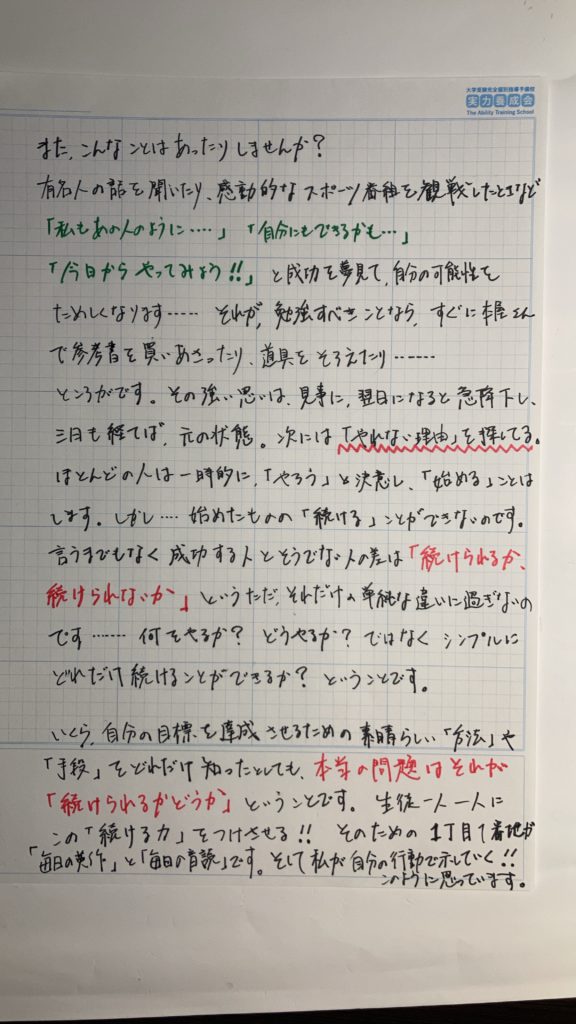 大学受験完全個別指導予備校
実力養成会
The Ability Training School
また、こんなことはあったりしませんか？
有名人の話を聞いたり、感動的なスポーツ番組を観戦したときなど
「私もあの人のように‥‥」「自分にもできるかも…」
「今日からやってみよう!!」と成功を夢見て、自分の可能性を
ためしくなります‥‥‥それが、勉強すべきことなら、すぐに本屋さん
で参考書を買いあさったり、道具をそろえたり‥‥‥
ところがです。その強い思いは、見事に、翌日になると急降下し、
三日も経てば、元の状態。次には「やれない理由」を探してる。
ほとんどの人は一時的に、「やろう」と決意し、「始める」ことは
します。しかし‥‥始めたものの「続ける」ことができないのです。
言うまでもなく成功する人とそうでない人の差は「続けられるか、
続けられないか」というただ、それだけの単純な違いに過ぎないの
です‥‥‥何をやるか？どうやるか？ではなくシンプルに
どれだけ続けることができるか？ということです。
いくら、自分の目標を達成させるための素晴らしい「方法」や
「手段」をどれだけ知ったとしても、本当の問題はそれが
「続けられるかどうか」ということです。生徒一人一人に
この「続ける力」をつけさせる!!そのための1丁目1番地が
「毎日の英作」と「毎日の音読」です。そして私が自分の行動で示していく!!
このように思っています。